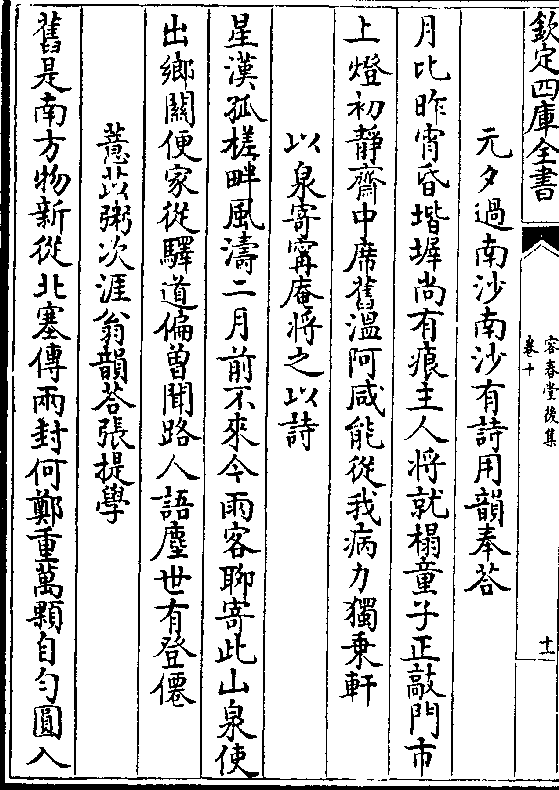 欽定四庫全書
容春堂後集
卷十
十一
元夕過南沙南沙有詩用韻奉荅
月比昨宵昏堦墀尚有痕主人將就榻童子正敲門市
上燈初靜齋中席舊溫阿咸能從我病力獨乗軒
以泉寄甯庵將之以詩
星漢孤槎畔風濤二月前不來今雨客聊寄此山泉使
出鄉關便家從驛道偏曽聞路人語塵世有登僊
薏苡粥次涯翁韻荅張提學
舊是南方物新從北塞傳兩封何鄭重萬顆自勻圓入